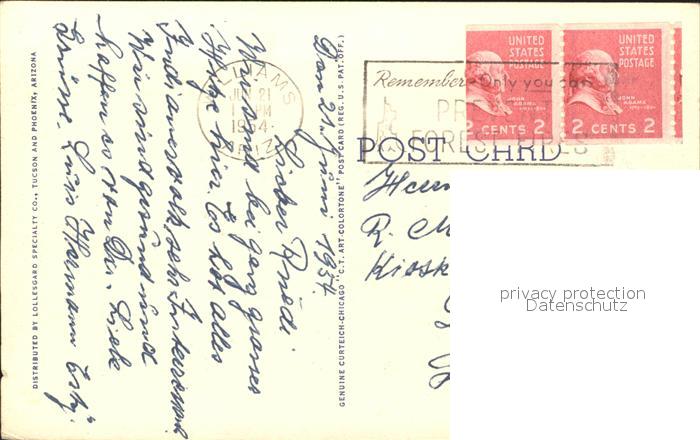 Den 21. Juni 1954.
Lieber Ruedi.
Wir sind bei ganz grosser
Hitze hier. Es hat alles
Indianervolk, sehr Interessant.
Wir sind gesund und
hoffen es von Dir. Liebe
Grüsse. Luis Hermann
DISTRIBUTED BY LOLLESGARD SPECIALTY CO., TUCSON AND PHOENIX, ARIZONA
GENUINE CURTEICH-CHICAGO "C.T. ART-COLORTONE" POST CARD (REG. U.S. PAT. OFF.)
WILLIAMS
JUN 21
PM
1954
ARIZ.
Remember - Only you can
PREVENT
FOREST FIRES
UNITED
STATES
POSTAGE
JOHN
ADAMS
2 CENTS 2
UNITED
STATES
POSTAGE
JOHN
ADAMS
2 CENTS 2
POST CARD
Herrn
R.
Kiosk
privacy protection
Datenschutz